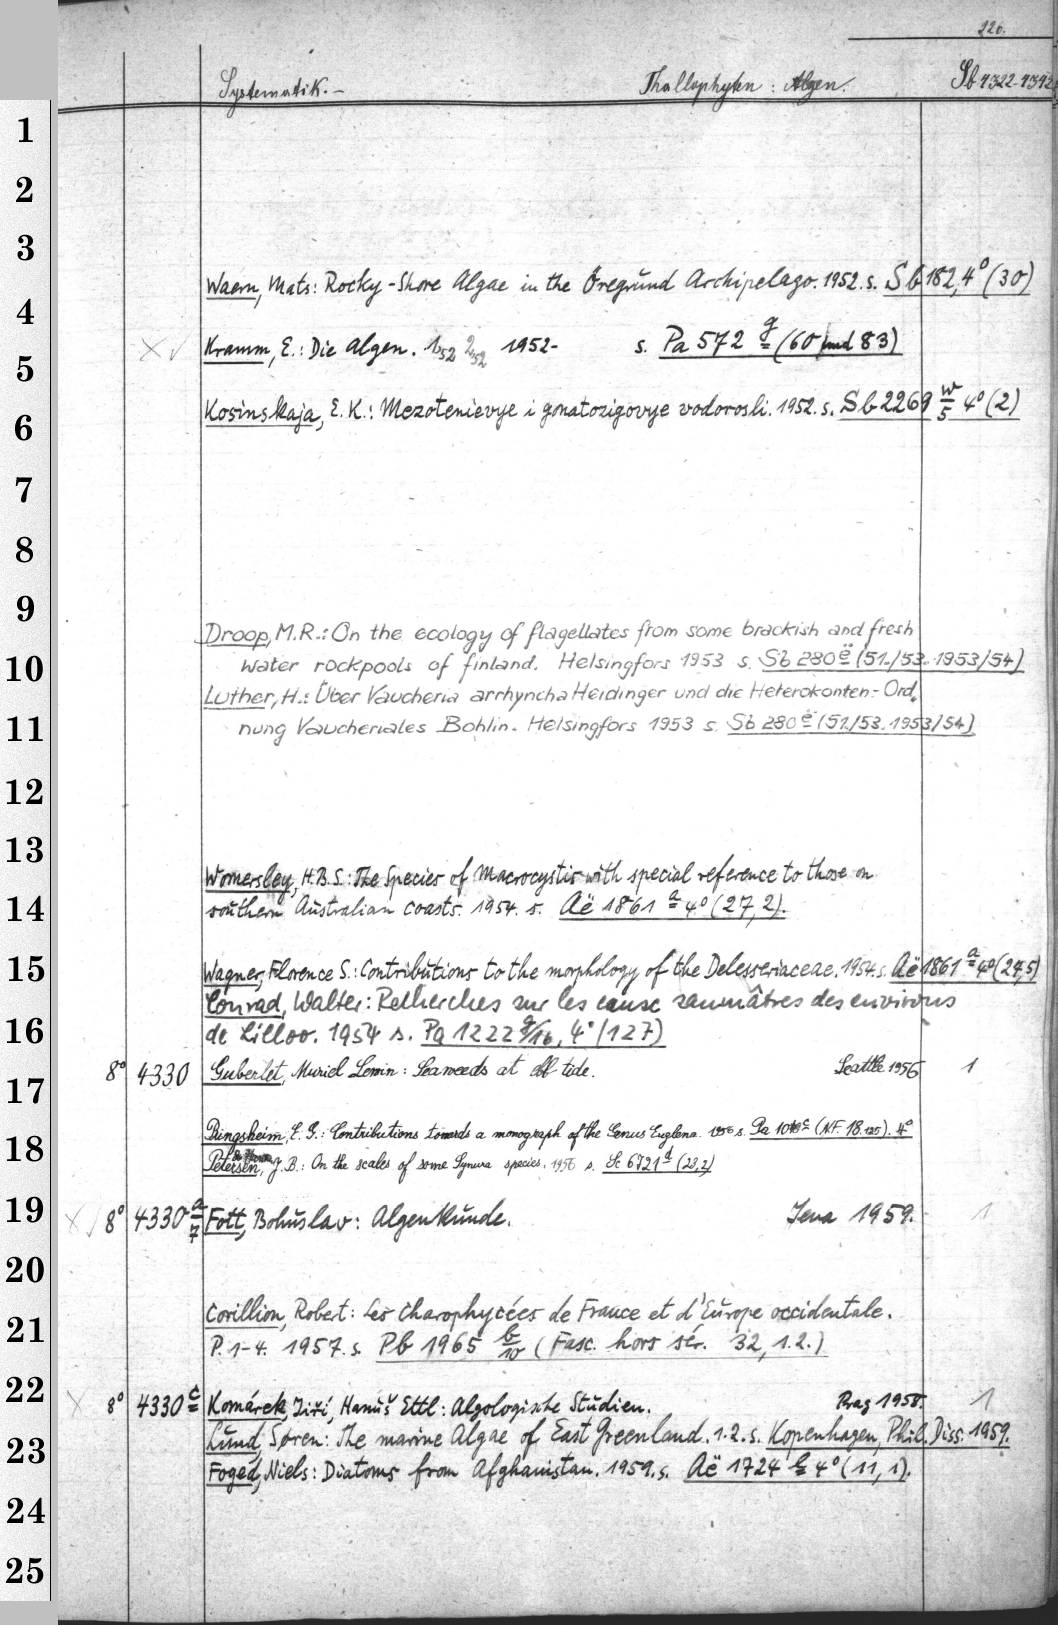 220.
Systematik.- Thallophyten: Algen. Sb 4322-4342
1
2
3
Waern, Mats: Rocky-Shore Algae in the Öregrund Archipelago. 1952. s. Sb 182, 4° (30)
4
Kramm, E.: Die Algen. 1,52 2,52 1952- s. Pa 572 g (60 und 83)
5
Kosinskaja, E. K.: Mezotenievye i gonatozigovye vodorosli. 1952. s. Sb 2269 w/5 4° (2)
6
7
8
9
Droop, M.R.: On the ecology of flagellates from some brackish and fresh
10 water rockpools of finland. Helsingfors 1953 s. Sb 280 ë (51./53. 1953/54)
Luther, H.: Über Vaucheria arrhyncha Heidinger und die Heterokonten-Ord.
11 nung Vaucheriales Bohlin. Helsingfors 1953 s. Sb 280 ë (51/53. 1953/54)
12
13
Womersley, H.B.S.: The Species of Macrocystis with special reference to those on
14 southern Australian coasts. 1954. s. Aë 1861 a 4° (27,2).
15 Wagner, Florence S.: Contributions to the morphology of the Delesseriaceae. 1954. s. Aë 1861 a 4° (27,5)
Conrad, Walter: Recherches sur les eause saumâtres des environs
16 de Lilloo. 1954 s. Pa 1222 g/16, 4° (127)
8° 4330 Guberlet, Muriel Lewin: Seaweeds at tide. Seattle 1956 1
17
Pringsheim, E. G.: Contributions towards a monograph of the Genus Euglena. 1956 s. Pa (N.F. 18 125). 4°
18
Petersen, J.B.: On the scales of some Synura species. 1956 s. Sc 6721 d (23,2)
19 8° 4330 a/7 Fott, Bohuslav: Algenkunde. Jena 1959. 1
20
Corillion, Robert: Les Charophycées de France et d'Europe occidentale.
21 P. 1-4. 1957. s. Pb 1965 b/10 (Fasc. hors sér. 32, 1.2.)
22 8° 4330 c Komárek, Jiří, Hanuš Ettl: Algologische Studien. Prag 1958. 1
Lund, Søren: The marine Algae of East Greenland. 1.2. s. Kopenhagen, Phil. Diss. 1959.
23
Foged, Niels: Diatoms from Afghanistan. 1959. s. Aë 1724 b 4° (11,1).
24
25